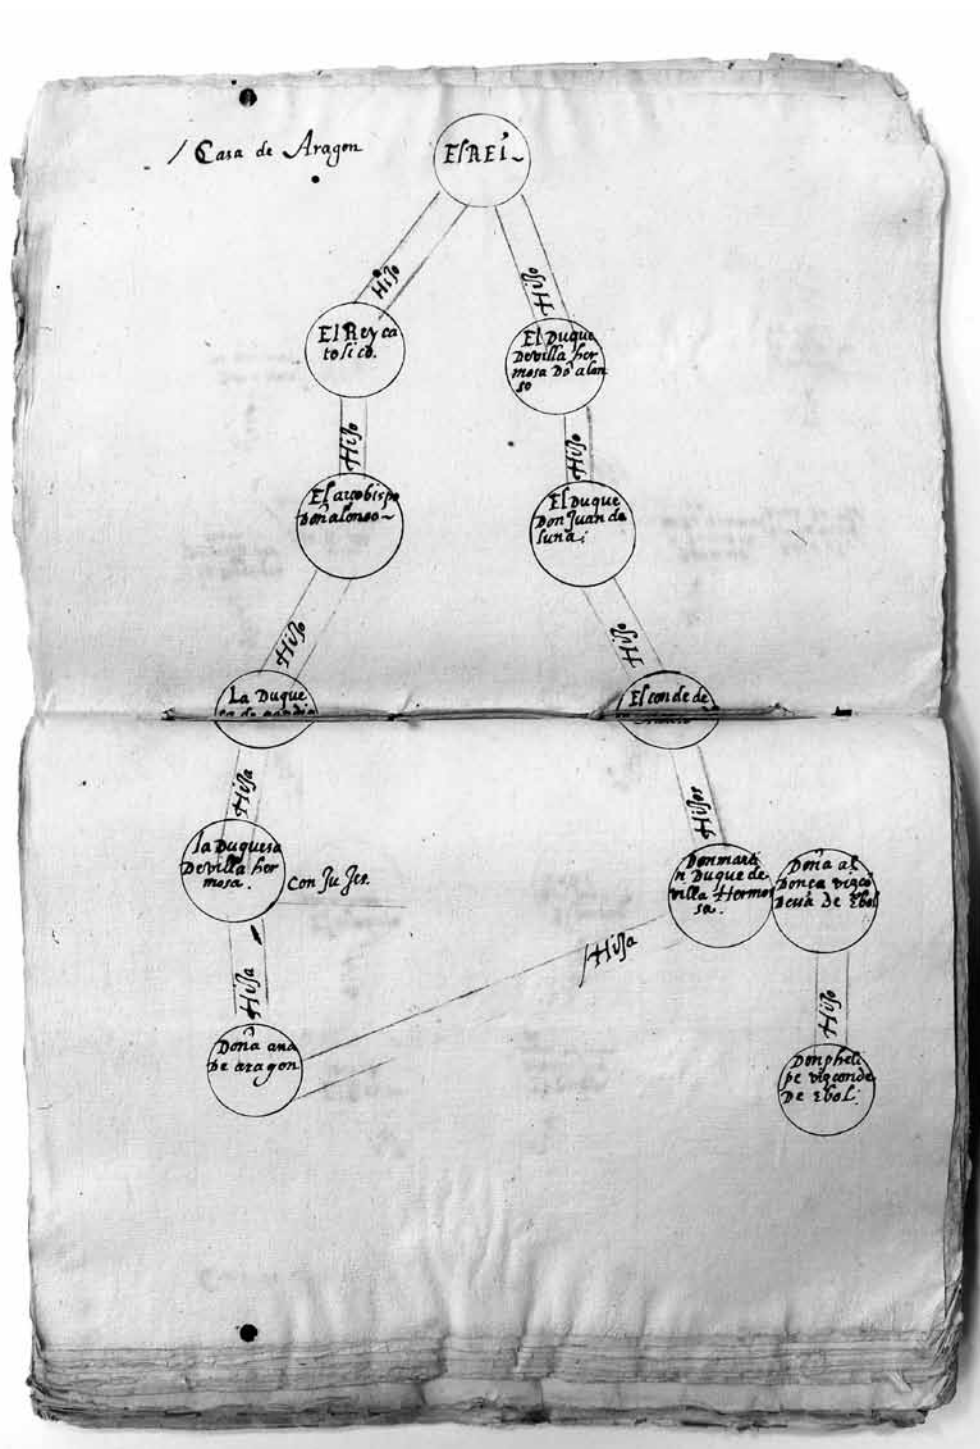 / Casa de Aragon
El REI~
Hijo
Hijo
El Rey ca
tolico.
El Duque
De villa her
mosa Dō alon
so
Hijo
Hijo
El arçobispo
Don alonso~
El Duque
Don Juan de
luna;
Hijo
Hijo
La Duque
sa de gandia
El conde de
Hija
Hijos
la Duquesa
De villa her
mosa.
Con Ju Jer.
Don marti
n Duque de
villa Hermo
sa.
Doña al
Donça vizcō
Desa de Ebol
Hija
/Hija
Hijo
Doña ana
De aragon
Don pheli
pe vizconde
De Ebol.